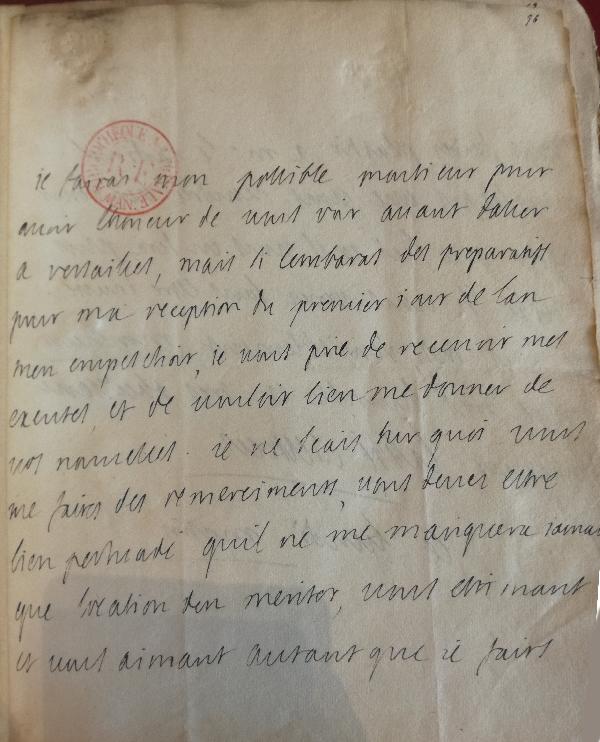 96
ie fairai mon possible monsieur pour
auoir lhonneur de vous voir auant daller
a versailles, mais si lembaras des preparatifs
pour ma reception du premier iour de lan
men empeschoit, ie vous prie de receuoir mes
excuses, et de vouloir bien me donner de
vos nouuelles. ie ne scais sur quoi vous
me faites des remerciments, vous deues estre
bien persuadé quil ne me manquera iamais
que location den meriter, vous estimant
et vous aimant autant que ie fais